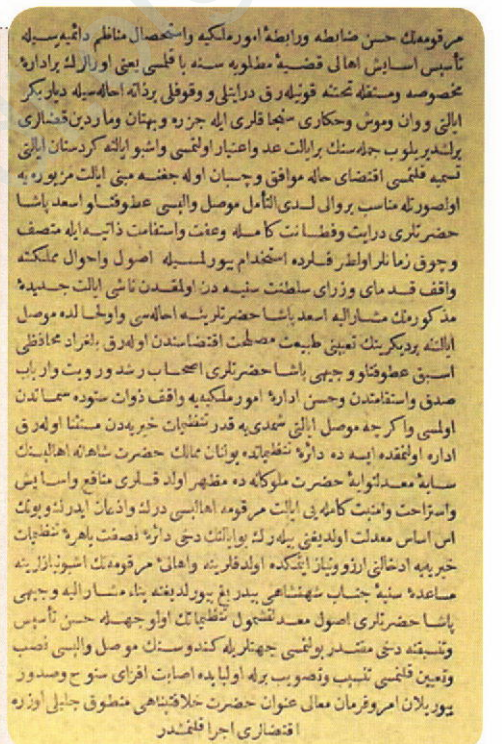 مرقومه‌نك حسن ضابطه ورابطهٔ امور ملكیه واستحصال مناظم دائمیه‌سیله
تأسیس اسایش اهالی قضیهٔ مطلوبه سنه باقلمسی یعنی اورالرك براداره
مخصوصه ومستقله تحتنه قونیله‌رق درایتلی و وقوفلی برذاته احاله‌سیله دیاربكر
ایالتی و وان وموش وحكاری سنجاقلری ایله جزره وبهتان وماردین قضالری
برلشدیریلوب جمله‌سنك برایالت عد واعتبار اولنمسی واشبو ایالته كردستان ایالتی
تسمیه قلنمسی اقتضای حاله موافق وچسبان اوله جغنه مبنی ایالت مزبوره یه
اولصورتله مناسب بروالی لدی التأمل موصل والیسی عطوفتلو اسعد پاشا
حضرتلری درایت وفطانت كامله وعفت واستقامت ذاتیه ایله متصف
وچوق زمانلر اواطرافلرده استخدام بیورلمسیله اصول واحوال مملكته
واقف قدمای وزرای سلطنت سنیه دن اولمقدن ناشی ایالت جدیدهٔ
مذكوره‌نك مشارالیه اسعد پاشا حضرتلرینه احاله‌سی واولحالده موصل
ایالتنه بردیكرینك تعیینی طبیعت مصلحت اقتضاسندن اوله‌رق بلغراد محافظی
اسبق عطوفتلو وجیهی پاشا حضرتلری اصحاب رشد ورویت وارباب
صدق واستقامتدن وحسن ادارهٔ امور ملكیه‌یه واقف ذوات ستوده سماتدن
اولمسی واكرچه موصل ایالتی شمدی‌یه قدر تنظیمات خیریه‌دن مستثنا اوله‌رق
اداره اولنمقده ایسه ده دائرهٔ تنظیماتده بولنان ممالك حضرت شاهانه اهالیسنك
سایهٔ معدلتوایهٔ حضرت ملوكانه ده مظهر اولدقلری منافع واسایش
واستراحت وامنیت كامله‌یی ایالت مرقومه اهالیسی درك واذعان ایدرك وبونك
اس اساس معدلت اولدیغنی بیله‌رك بوایالتك دخی دائرهٔ نصفت باهرهٔ تنظیمات
خیریه‌یه ادخالنی ارزو ونیاز ایتمكده اولدقلرینه واهالیٔ مرقومه‌نك اشبونیازلرینه
مساعدهٔ سنیهٔ جناب شهنشاهی بیدریغ بیورلدیغنه بناء مشارالیه وجیهی
پاشا حضرتلری اصول معدلتشمول تنظیماتك اولوجهله حسن تأسیس
وتنسیقنه دخی مقتدر بولنمسی جهتلریله كندوسنك موصل والیسی نصب
وتعیین قلنمسی تنسیب وتصویب برله اولبابده اصابت افزای سنوح وصدور
بیوریلان امر وفرمان معالی عنوان حضرت خلافتپناهی منطوق جلیلی اوزره
اقتضالری اجرا قلنمشدر